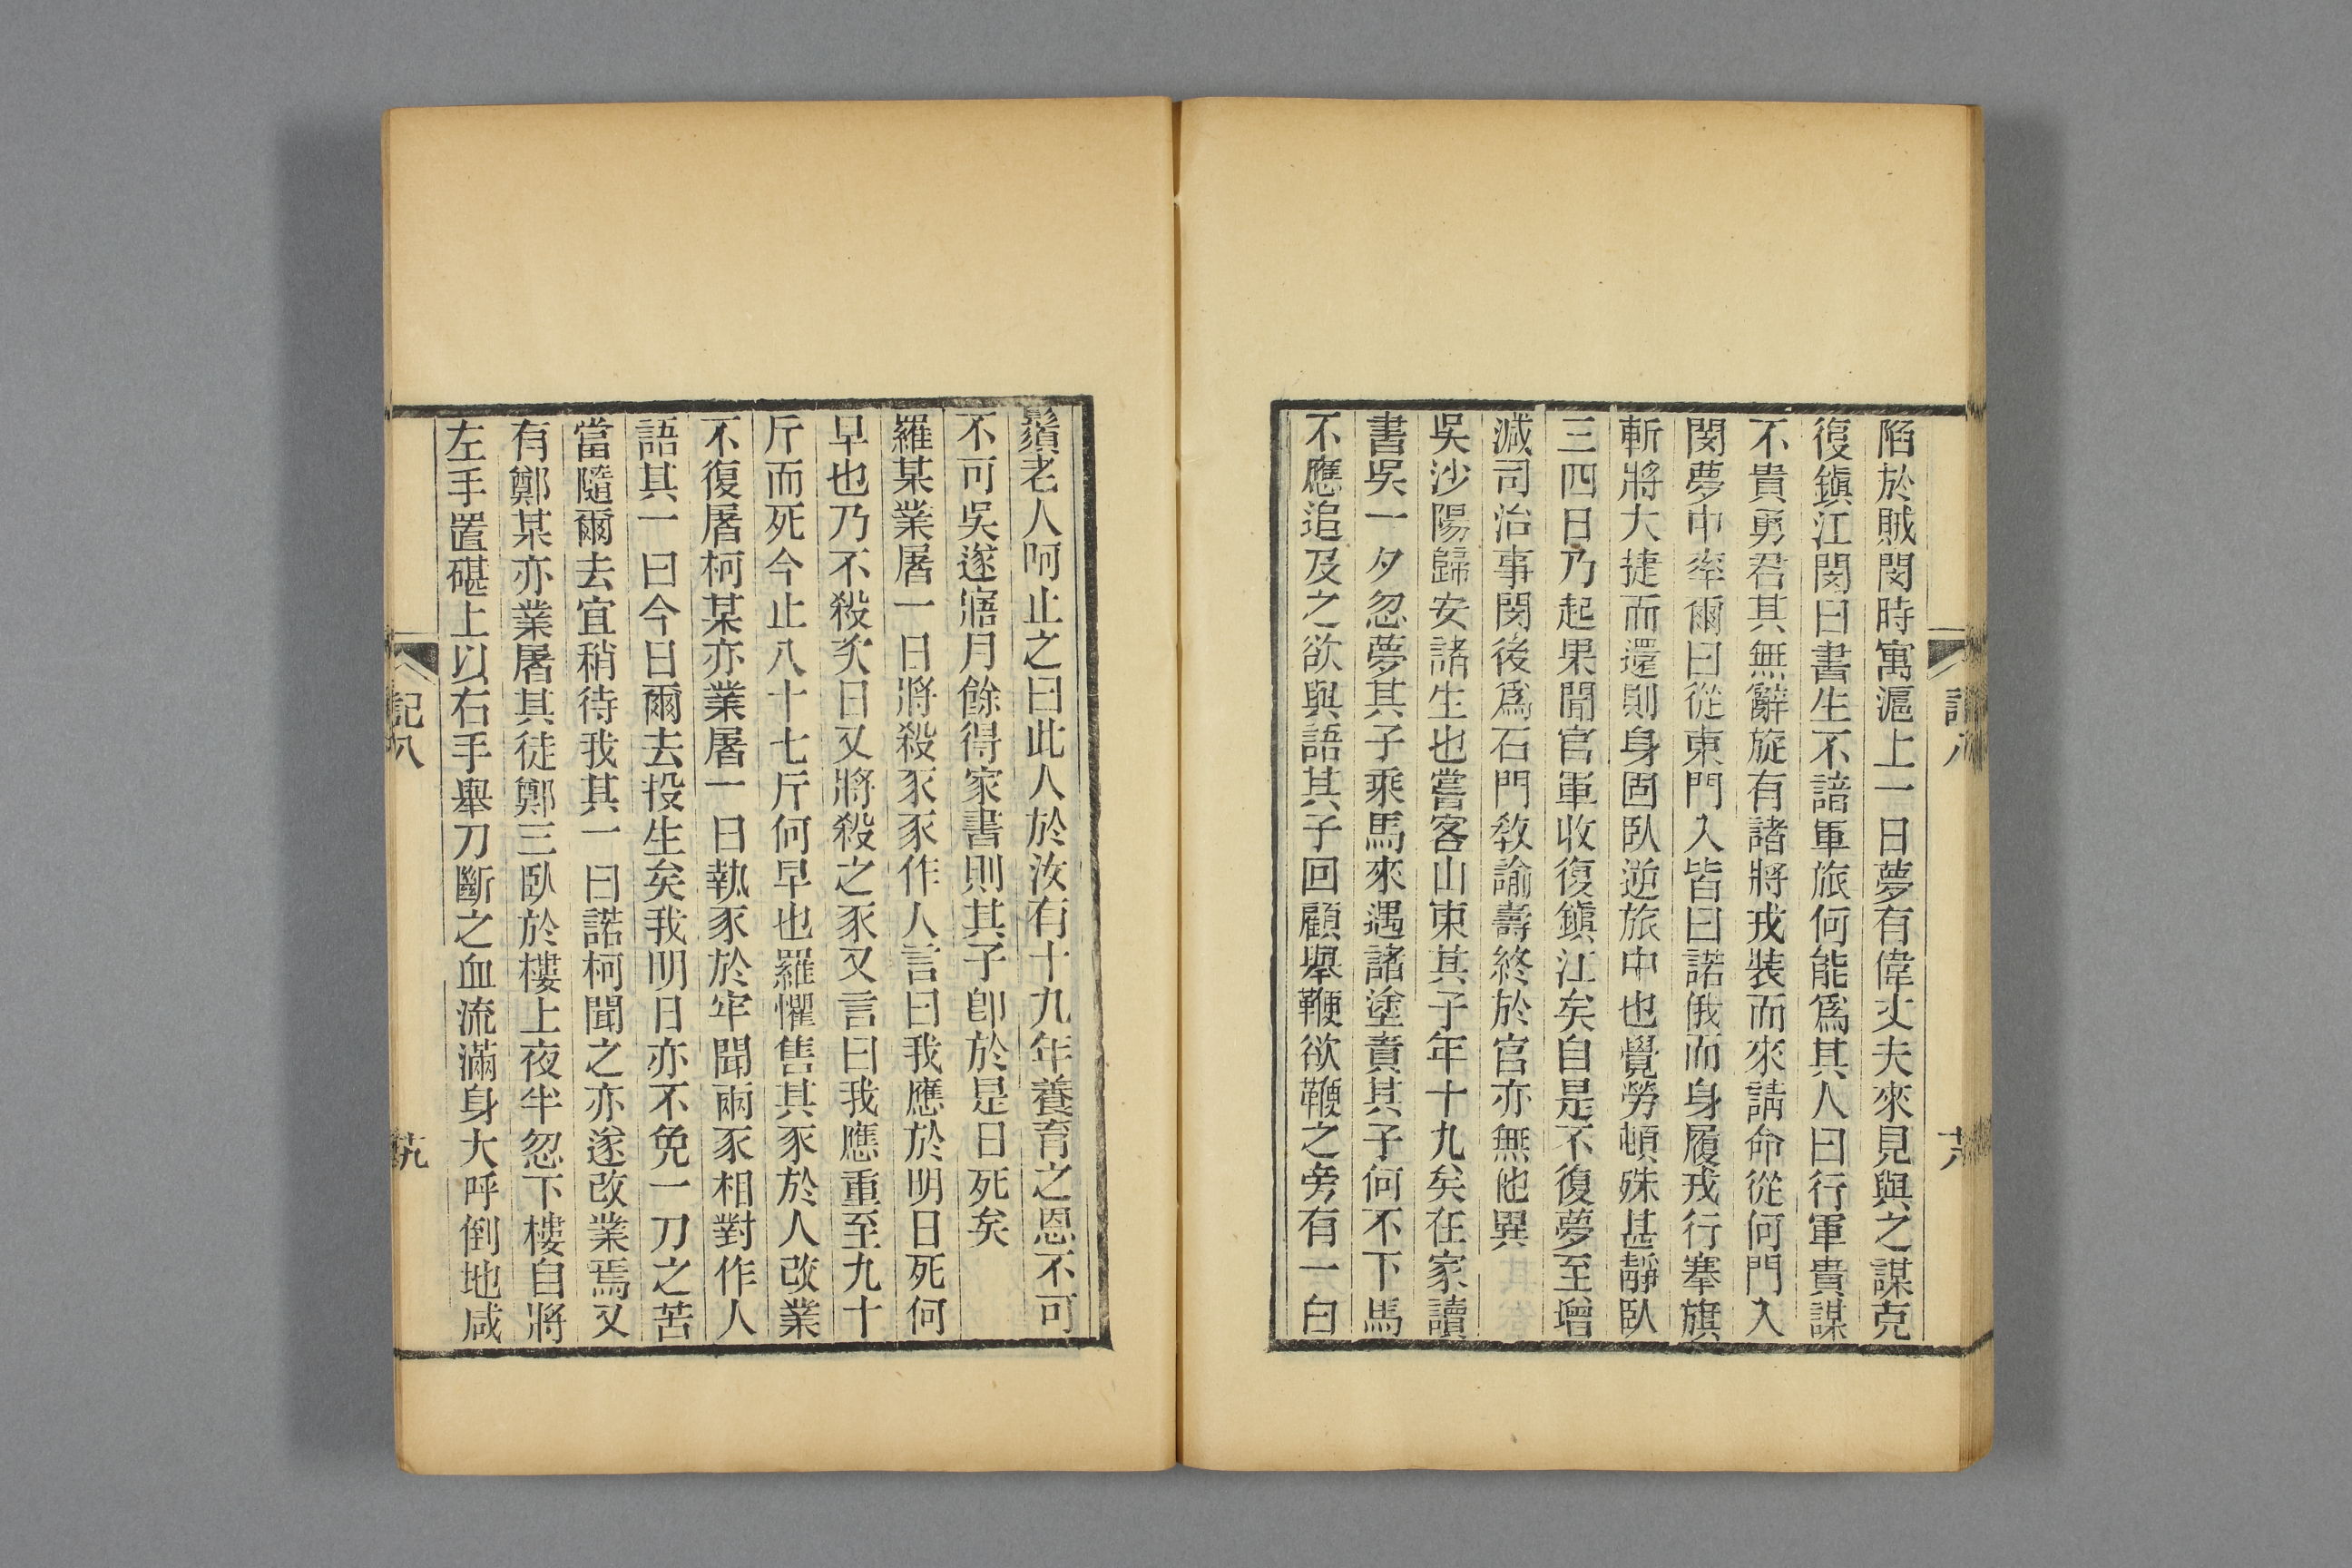 陷於賊閔時寓滬上一日夢有偉丈夫來見與之謀克
復鎭江閔曰書生不諳軍旅何能爲其人曰行軍貴謀
不貴勇君其無辭旋有諸將戎裝而來請命從何門入
閔夢中率爾曰從東門入皆曰諾俄而身履戎行搴旗
斬將大捷而還則身固臥逆旅中也覺勞頓殊甚靜臥
三四日乃起果聞官軍收復鎭江矣自是不復夢至增
減司治事閔後爲石門敎諭壽終於官亦無他異
吳沙陽歸安諸生也嘗客山東其子年十九矣在家讀
書吳一夕忽夢其子乘馬來遇諸塗責其子何不下馬
不應追及之欲與語其子回顧舉鞭欲鞭之旁有一白
記八
鬚老人呵止之曰此人於汝有十九年養育之恩不可
不可吳遂寤月餘得家書則其子卽於是日死矣
羅某業屠一日將殺豕豕作人言曰我應於明日死何
早也乃不殺次日又將殺之豕又言曰我應重至九十
斤而死今止八十七斤何早也羅懼售其豕於人改業
不復屠柯某亦業屠一日執豕於牢聞兩豕相對作人
語其一曰今日爾去投生矣我明日亦不免一刀之苦
當隨爾去宜稍待我其一曰諾柯聞之亦遂改業焉又
有鄭某亦業屠其徒鄭三臥於樓上夜半忽下樓自將
左手置碪上以右手舉刀斷之血流滿身大呼倒地咸
記八